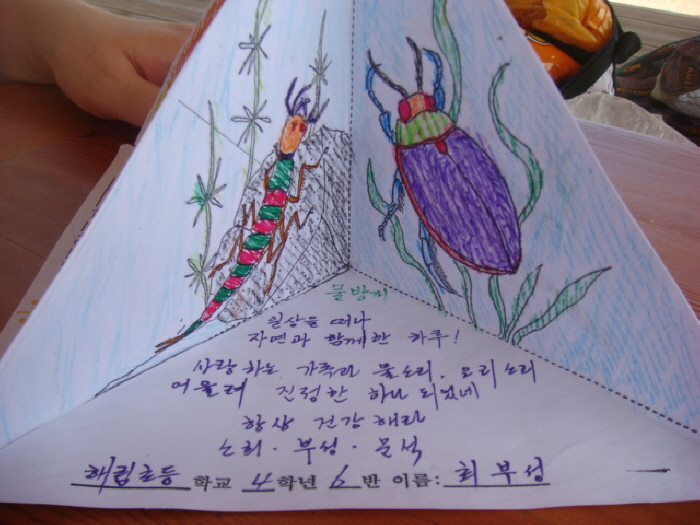 물방개
일상을 떠나
자연과 함께한 하루!
사랑하는 가족과 물소리. 오리소리
어울려 진정한 하나 되었네
항상 건강해라
논희. 부성. 문석
해림초등 학교 4 학년 6 반 이름: 최부성